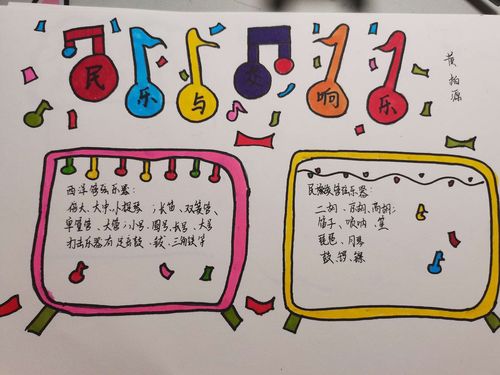 民乐与交响乐
黄柏源
西洋管弦乐器:
倍大、大中、小提琴;长笛、双簧管、
单簧管、大管;小号、圆号、长号、大号
打击乐器有 定音鼓、钹、三角铁等
民族管弦乐器:
二胡、京胡、高胡;
笛子、唢呐、笙
琵琶、月琴
鼓、锣、镲